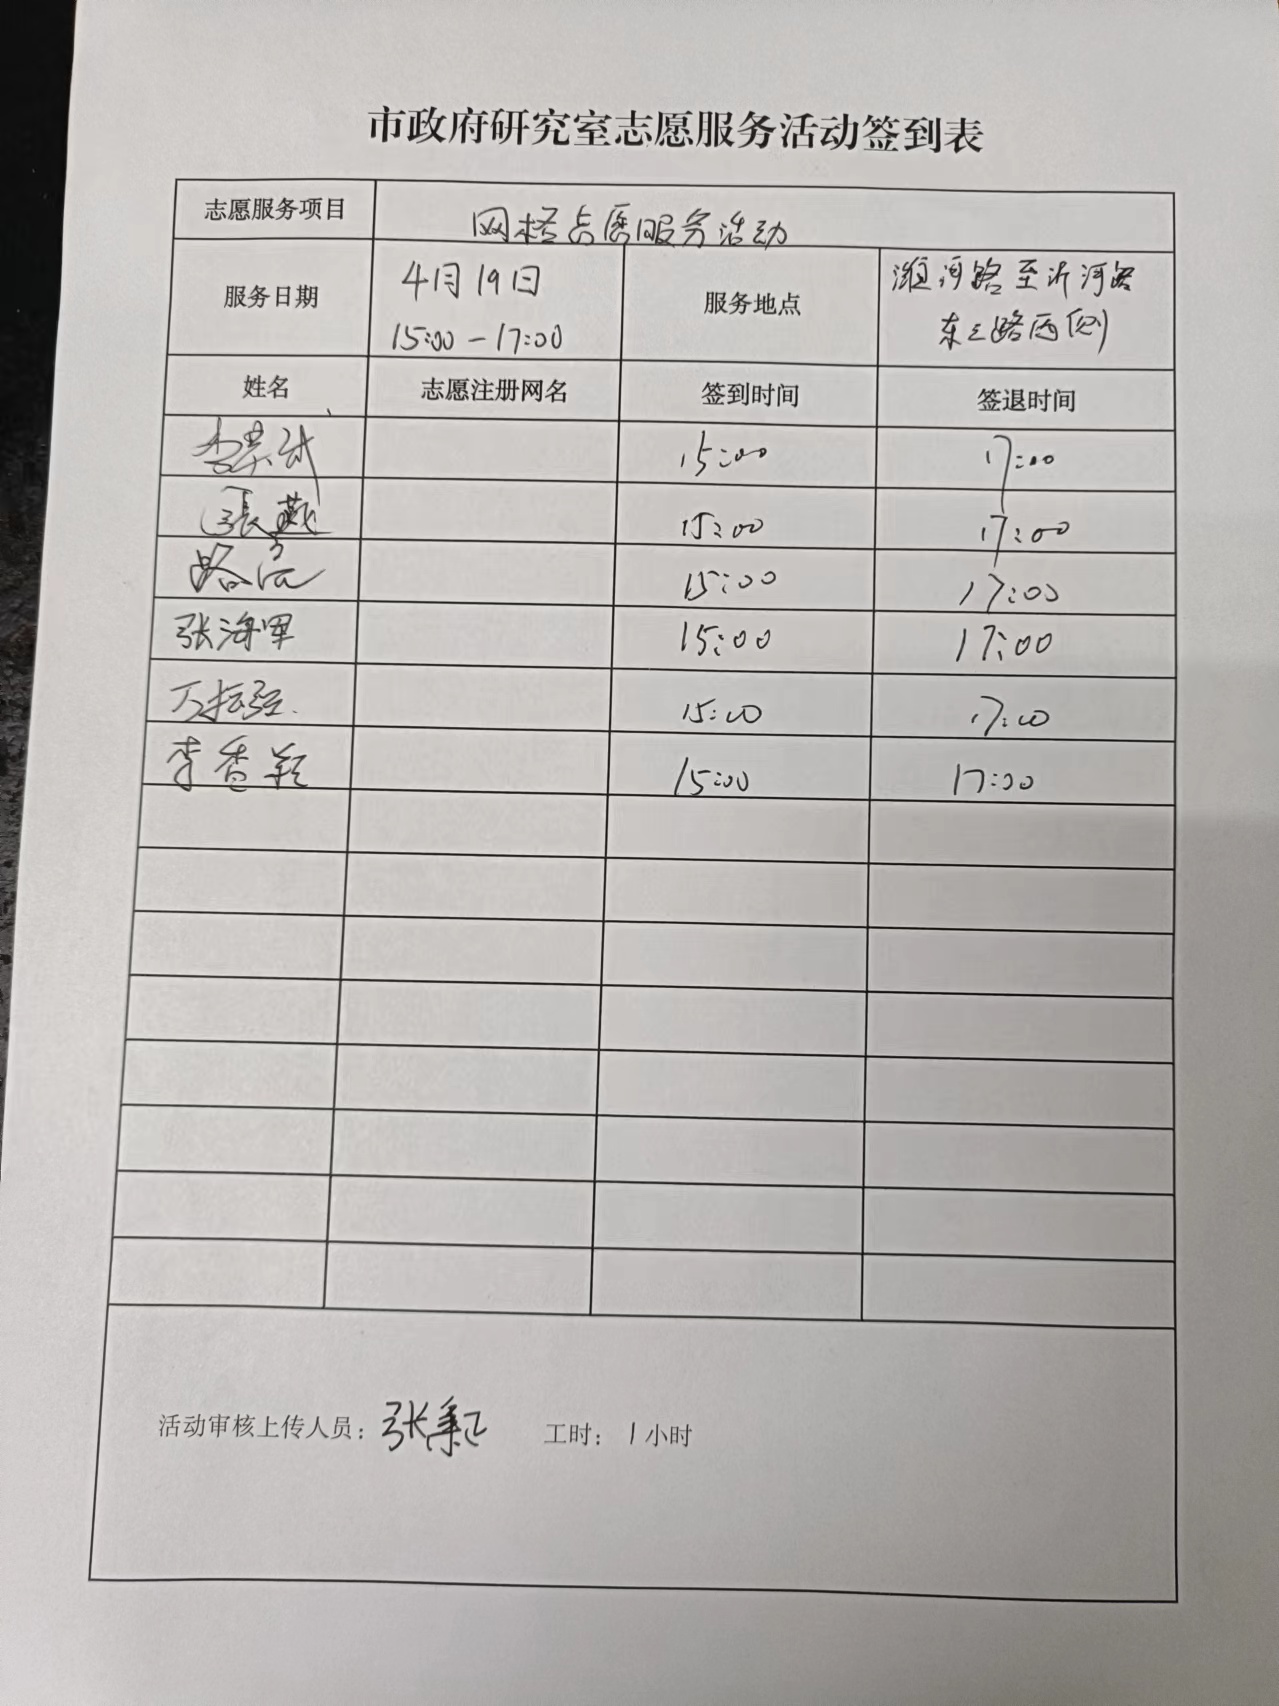 市政府研究室志愿服务活动签到表
志愿服务项目 网格志愿服务活动
服务日期 4月19日 15:00-17:00 服务地点 潍河路至沂河路 东三路两侧
姓名 志愿注册网名 签到时间 签退时间
15:00 17:00
張燕 15:00 17:00
路 15:00 17:00
张海军 15:00 17:00
万 15:00 17:00
李香颖 15:00 17:00
活动审核上传人员: 张 工时: 1小时